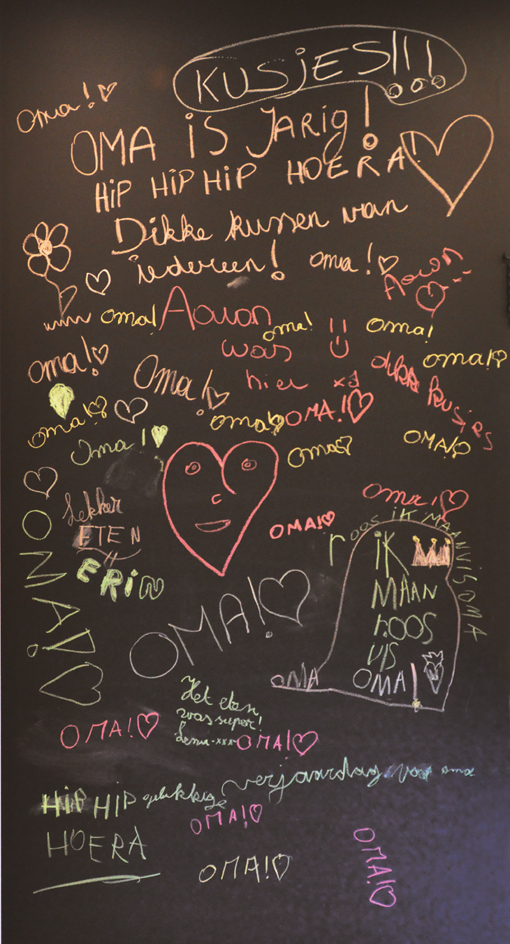 KUSJES!!!
Oma!
OMA iS JARig!
HiP HiP HiP HOERA!
Dikke kussen van
iedereen!
oma!
Aowon
oma!
Aowon
was
hier xJ
oma!
oma!
oma!
Oma!
oma!
dikke kusjes
oma!
oma!
OMA!
oma!
OMA!
oma!
oma!
OMA!
Lekker
ETEN
ERiN
OMA!
OMA!
OMA!
roos iK MAAN
iK
MAAN
ROOS
OMA!
OMA
Het eten
was super!
xxx
OMA!
OMA!
HiP HiP gelukkige verjaardag voor oma
HOERA
OMA!
OMA!
OMA!